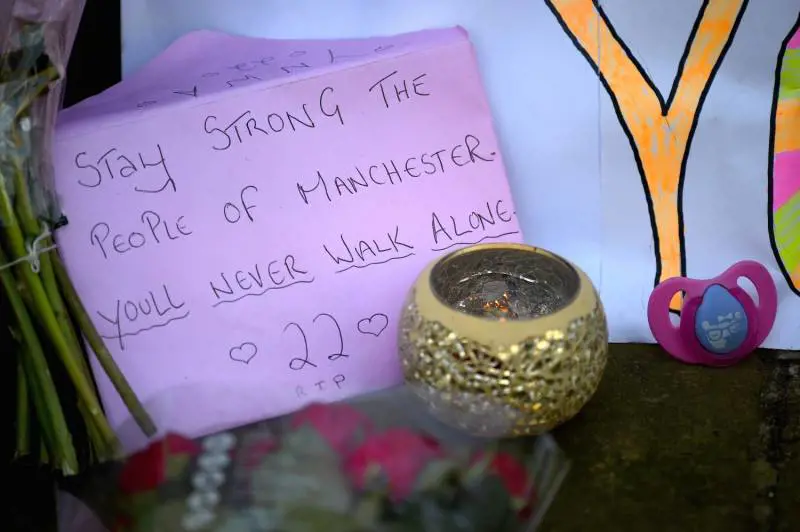 STay STRONG THE
PEOPLE OF MANCHESTER.
YOULL NEVER WALK ALONE.
♡ 22 ♡
RIP
Y